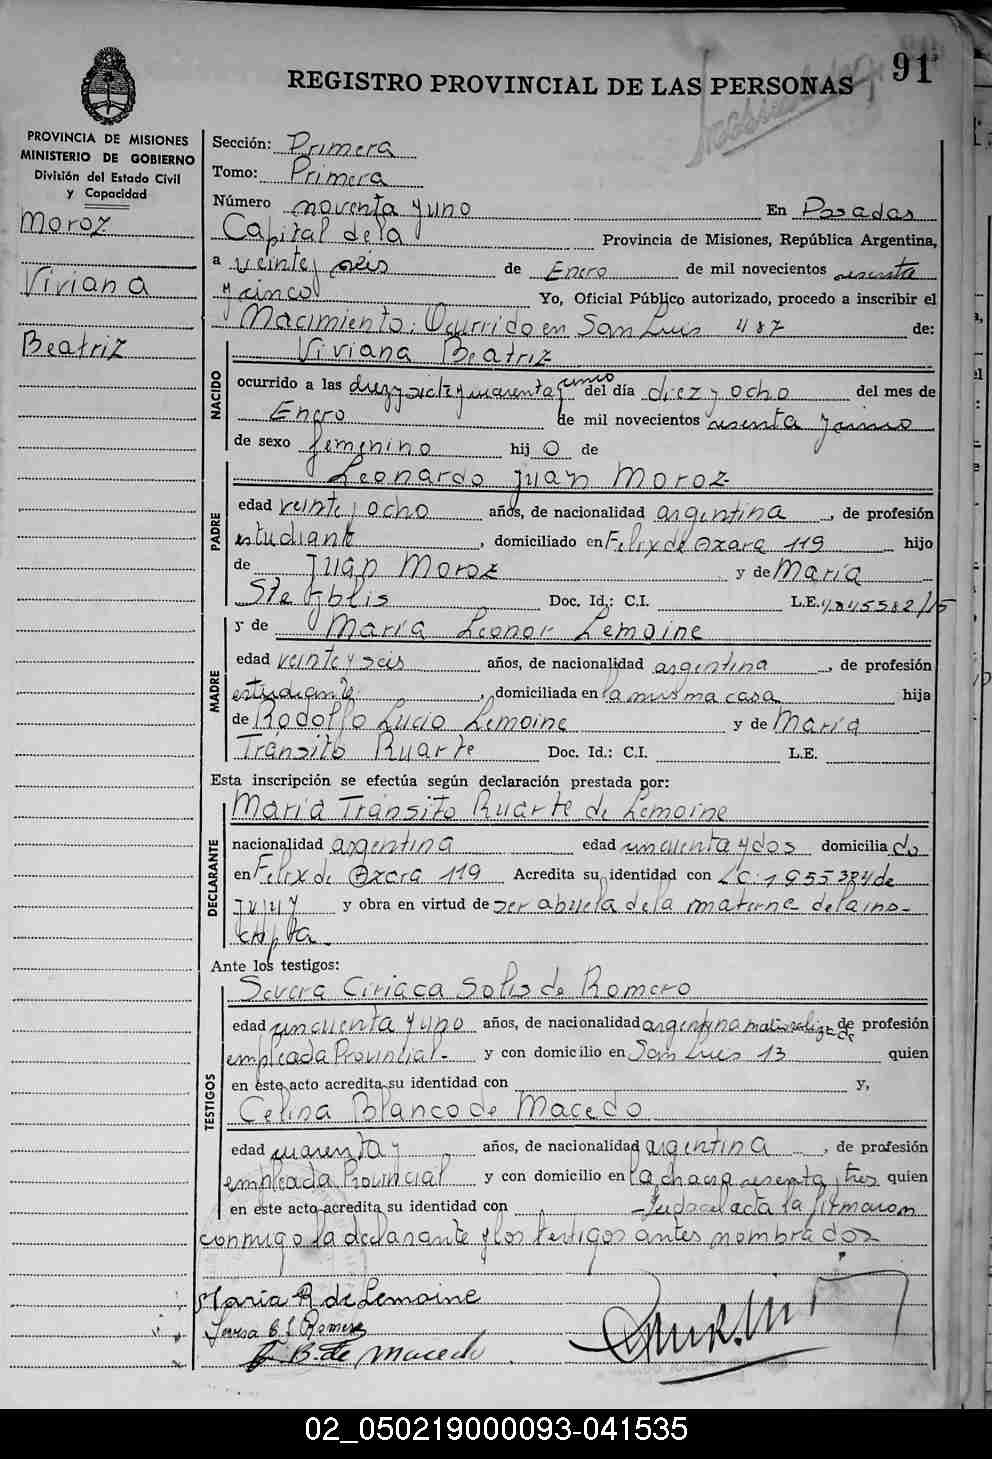 91
REGISTRO PROVINCIAL DE LAS PERSONAS
PROVINCIA DE MISIONES
MINISTERIO DE GOBIERNO
División del Estado Civil
y Capacidad
Moroz
Viviana
Beatriz
Sección: Primera
Tomo: Primera
Número noventa y uno En Posadas
Capital de la Provincia de Misiones, República Argentina,
a veinte y seis de Enero de mil novecientos sesenta
y cinco Yo, Oficial Público autorizado, procedo a inscribir el
Nacimiento: Ocurrido en San Luis 487 de:
NACIDO
Viviana Beatriz
ocurrido a las diez y siete y cuarenta y cinco del día diez y ocho del mes de
Enero de mil novecientos sesenta y cinco
de sexo femenino hij o de
PADRE
Leonardo Juan Moroz
edad veinte y ocho años, de nacionalidad argentina, de profesión
estudiante, domiciliado en Felix de Azara 119 hijo
de Juan Moroz y de María
Doc. Id.: C.I. L.E.
MADRE
y de María Leonor Lemoine
edad veinte y seis años, de nacionalidad argentina, de profesión
estudiante, domiciliada en la misma casa hija
de Rodolfo Lucio Lemoine y de María
Tránsito Ruarte Doc. Id.: C.I. L.E.
Esta inscripción se efectúa según declaración prestada por:
DECLARANTE
María Tránsito Ruarte de Lemoine
nacionalidad argentina edad cincuenta y dos domicilia do
en Felix de Azara 119 Acredita su identidad con L.C. 1955384 de
Jujuy y obra en virtud de ser abuela de la materna de la ins-
cripta.
Ante los testigos:
TESTIGOS
Severa Ciriaca Solis de Romero
edad cincuenta y uno años, de nacionalidad argentina de profesión
empleada Provincial- y con domicilio en San Luis 13 quien
en este acto acredita su identidad con y,
Celina Blanco de Macedo
edad cuarenta y años, de nacionalidad argentina, de profesión
empleada Provincial y con domicilio en la chacra sesenta y tres quien
en este acto acredita su identidad con acta la firmaron
conmigo la declarante y los testigos antes nombrados
María R. de Lemoine
Romero
B. de Macedo
02_050219000093-041535